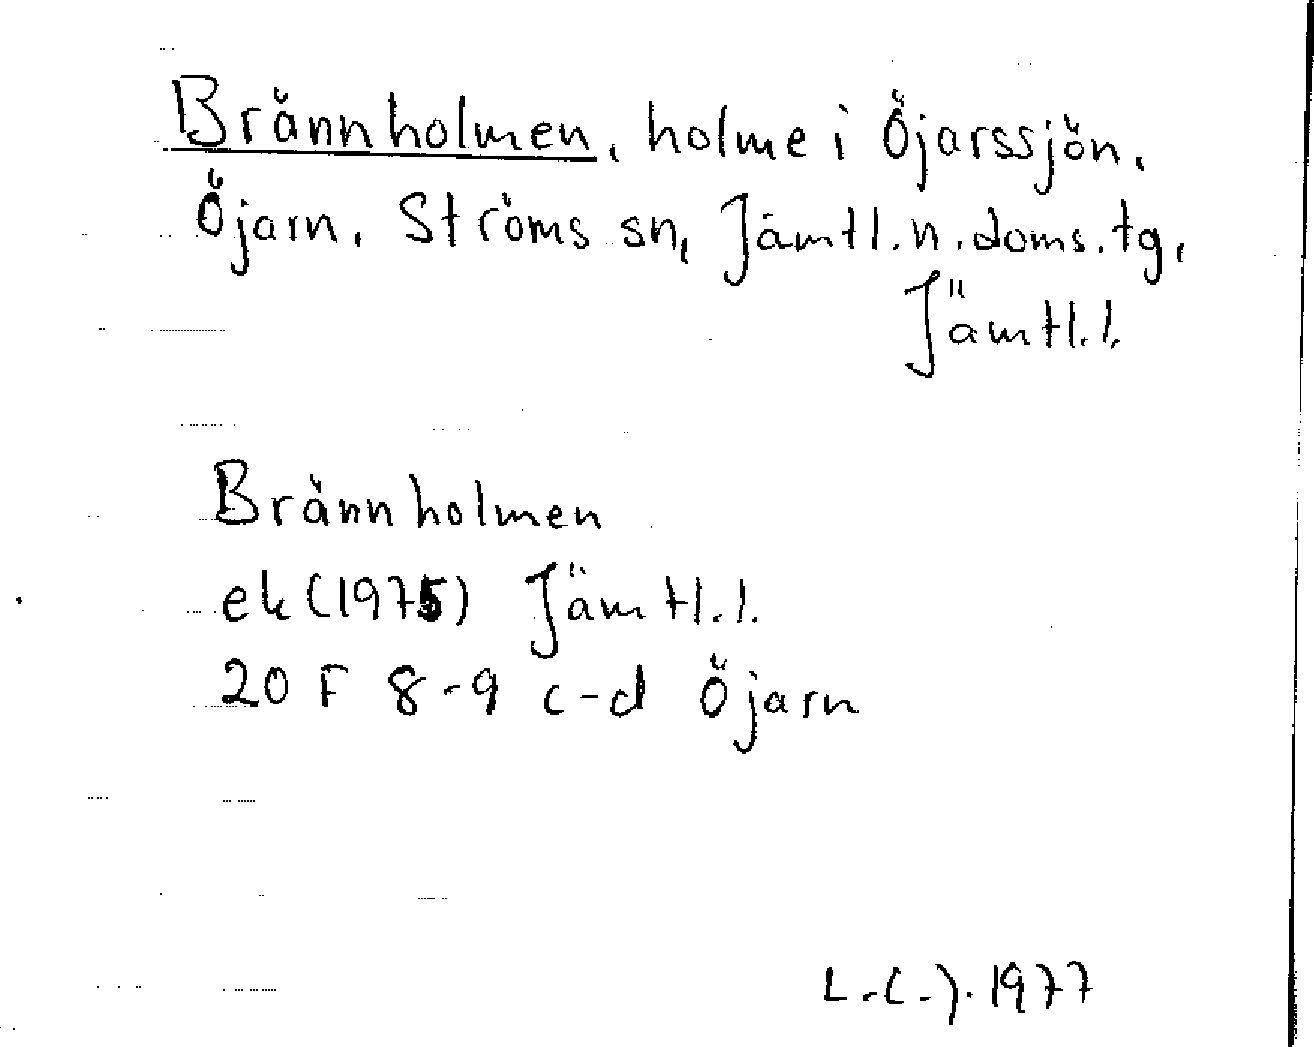 Brännholmen, holme i Öjarssjön,
Öjarn, Ströms sn, Jämtl.n.doms.tg,
Jämtl.l.
Brännholmen
ek (1975) Jämtl.l.
20 F 8-9 c-d Öjarn
L.C.J. 1977